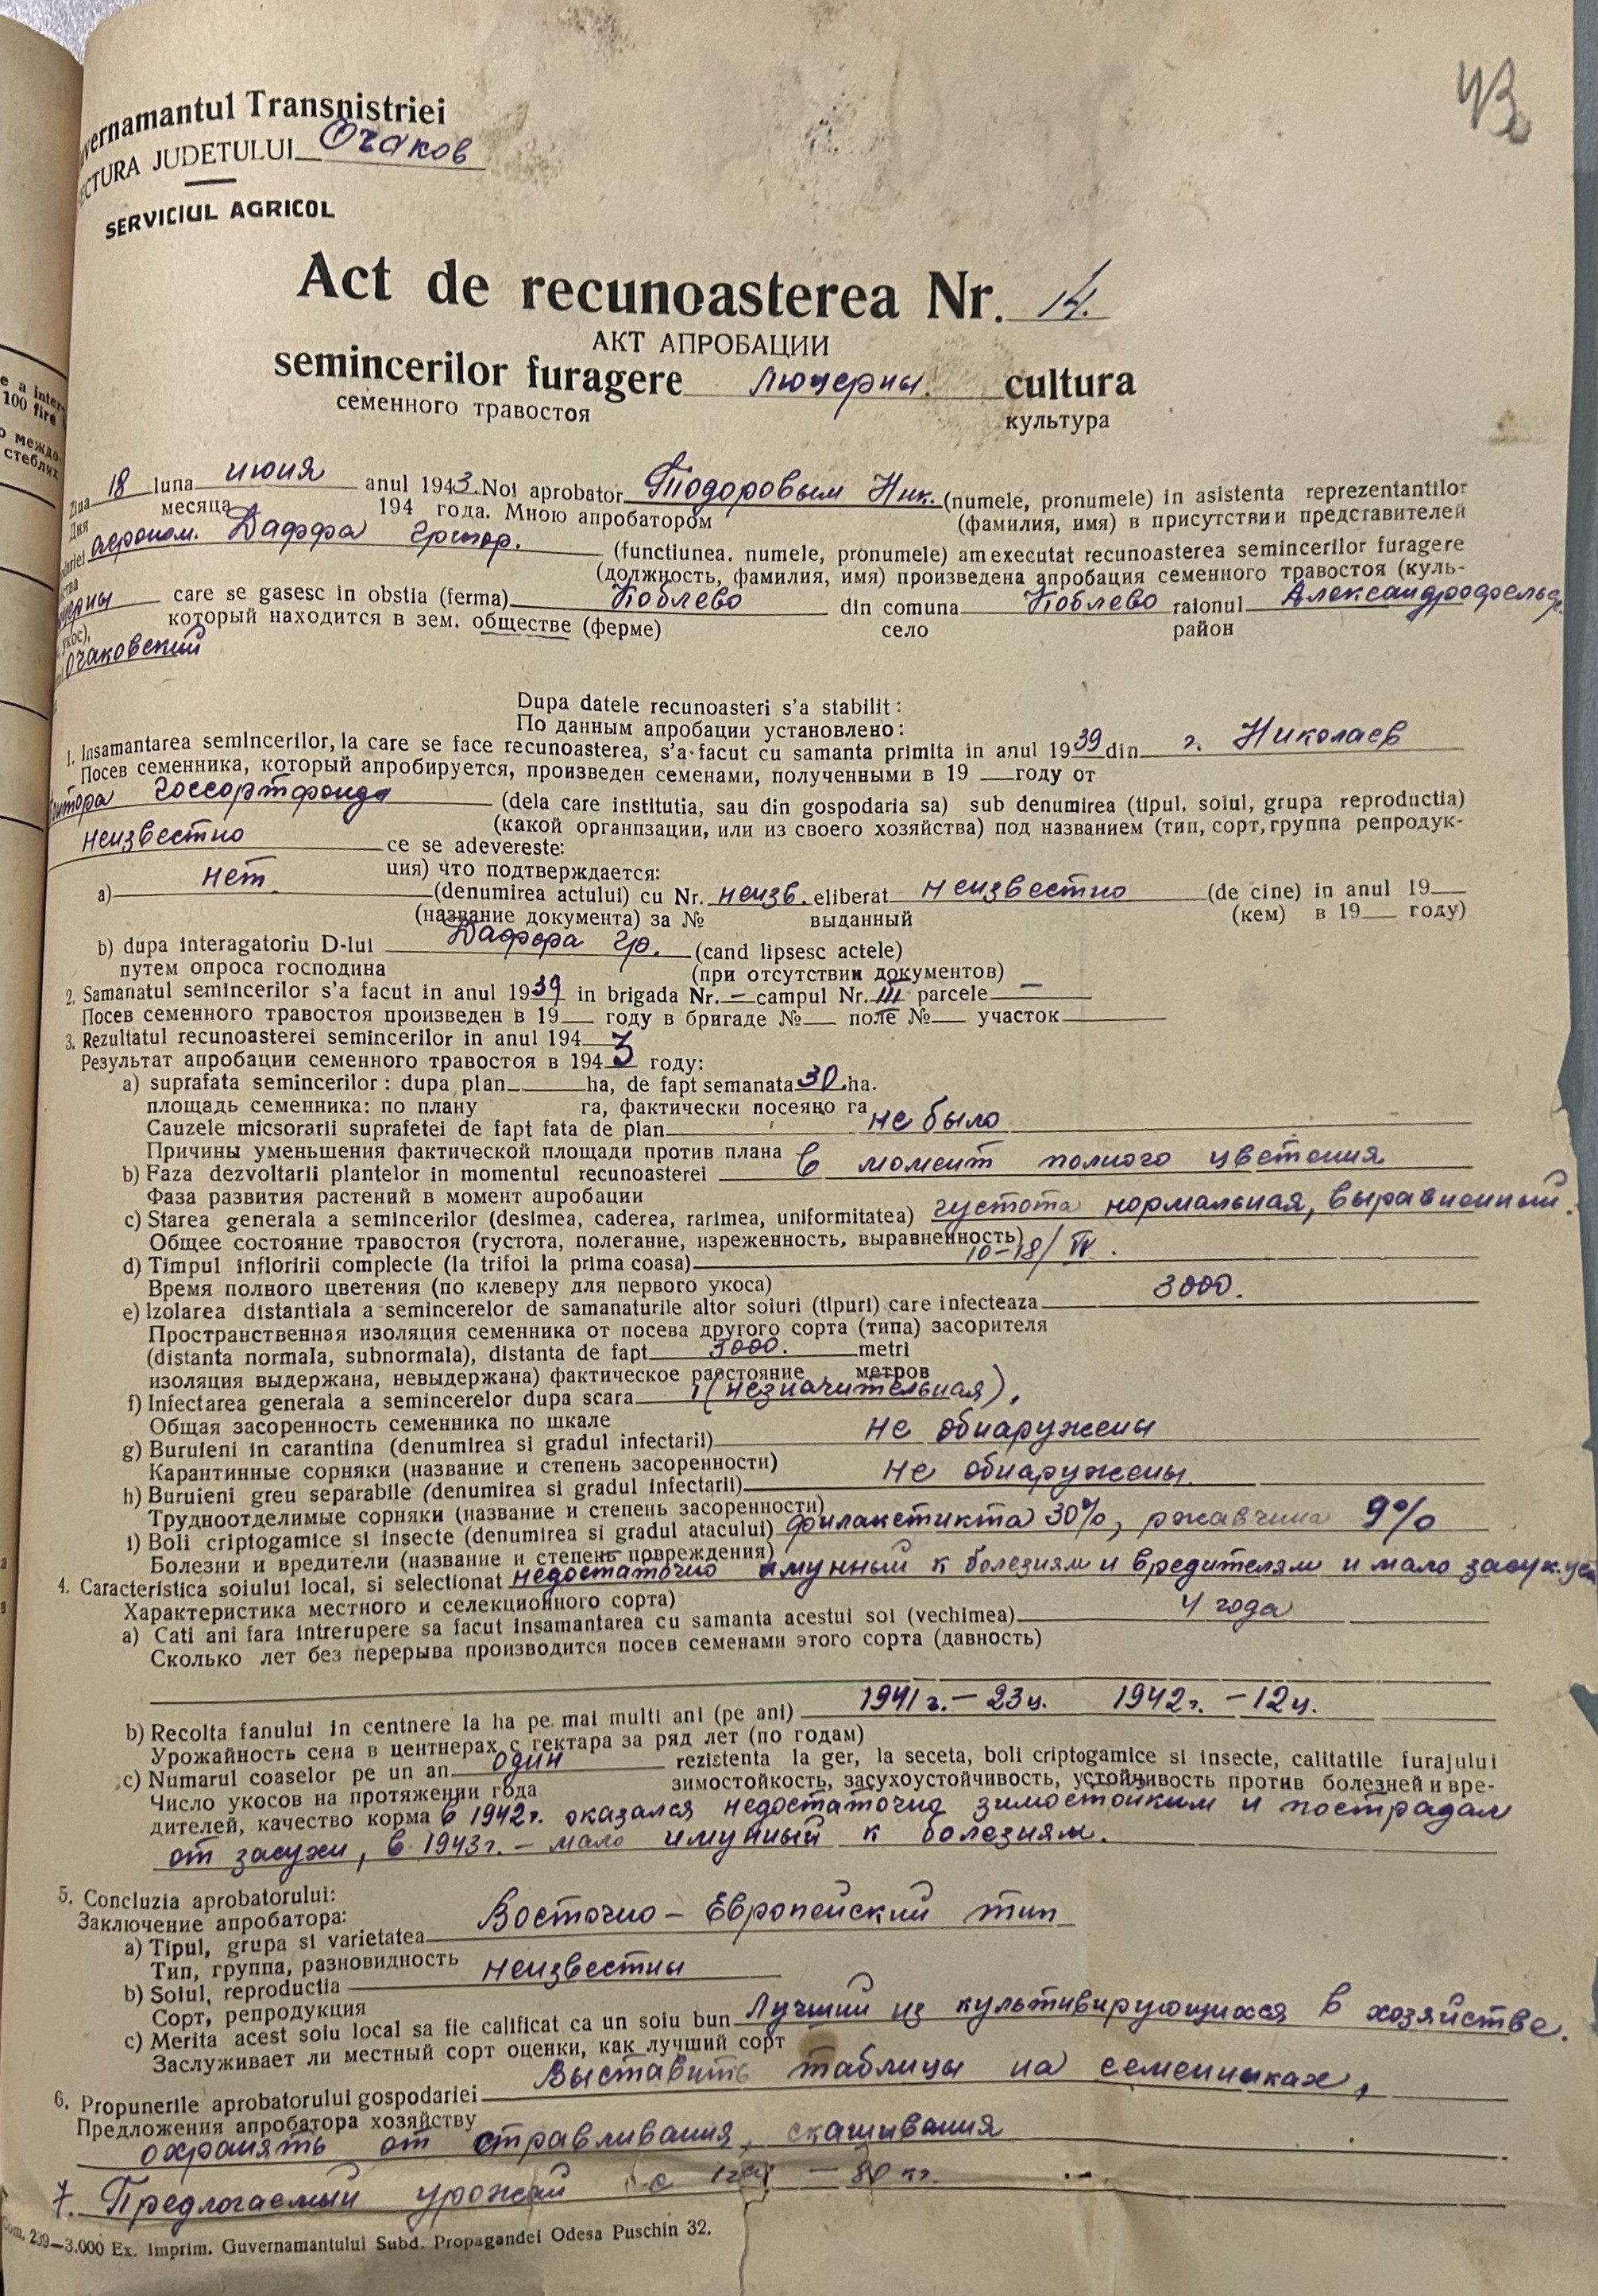 43
vernamantul Transnistriei
ECTURA JUDETULUI Очаков
SERVICIUL AGRICOL
Act de recunoasterea Nr. 14.
АКТ АПРОБАЦИИ
semincerilor furagere люцерны. cultura
семенного травостоя культура
Zina 18 luna июня anul 1943. Noi aprobator Тодоровым Ник. (numele, pronumele) in asistenta reprezentantilor
Дня месяца 194 года. Мною апробатором (фамилия, имя) в присутствии представителей
агроном. Даффа Григор. (functiunea. numele, pronumele) am executat recunoasterea semincerilor furagere
(должность, фамилия, имя) произведена апробация семенного травостоя (куль-
care se gasesc in obstia (ferma) Коблево din comuna Коблево raionul Александрофельд.
который находится в зем. обществе (ферме) село район
укос),
Очаковский
Dupa datele recunoasteri s'a stabilit:
По данным апробации установлено:
1. Insamantarea semincerilor, la care se face recunoasterea, s'a facut cu samanta primita in anul 1939 din г. Николаев
Посев семенника, который апробируется, произведен семенами, полученными в 19 году от
Госсортфонда (dela care institutia, sau din gospodaria sa) sub denumirea (tipul, soiul, grupa reproductia)
(какой организации, или из своего хозяйства) под названием (тип, сорт, группа репродук-
неизвестно ce se adevereste:
ция) что подтверждается:
a) нет (denumirea actului) cu Nr. неизв. eliberat неизвестно (de cine) in anul 19
(название документа) за № выданный (кем) в 19 году)
b) dupa interagatoriu D-lui Даффа Гр. (cand lipsesc actele)
путем опроса господина (при отсутствии документов)
2. Samanatul semincerilor s'a facut in anul 1939 in brigada Nr. — campul Nr. III parcele —
Посев семенного травостоя произведен в 19 году в бригаде № поле № участок
3. Rezultatul recunoasterei semincerilor in anul 194
Результат апробации семенного травостоя в 1943 году:
a) suprafata semincerilor: dupa plan ha, de fapt semanata 30 ha.
площадь семенника: по плану га, фактически посеяно га
Cauzele micsorarii suprafetei de fapt fata de plan не было
Причины уменьшения фактической площади против плана
b) Faza dezvoltarii plantelor in momentul recunoasterei в момент полного цветения
Фаза развития растений в момент апробации
c) Starea generala a semincerilor (desimea, caderea, rarimea, uniformitatea) густота нормальная, выравненный.
Общее состояние травостоя (густота, полегание, изреженность, выравненность)
d) Timpul infloririi complecte (la trifoi la prima coasa) 10-18/VI.
Время полного цветения (по клеверу для первого укоса)
e) Izolarea distantiala a semincerelor de samanaturile altor soiuri (tipuri) care infecteaza 3000.
Пространственная изоляция семенника от посева другого сорта (типа) засорителя
(distanta normala, subnormala), distanta de fapt 3000. metri
изоляция выдержана, невыдержана) фактическое расстояние метров
f) Infectarea generala a semincerelor dupa scara 1 (незначительная).
Общая засоренность семенника по шкале
g) Buruieni in carantina (denumirea si gradul infectarii) не обнаружены
Карантинные сорняки (название и степень засоренности)
h) Buruieni greu separabile (denumirea si gradul infectarii) не обнаружены.
Трудноотделимые сорняки (название и степень засоренности)
i) Boli criptogamice si insecte (denumirea si gradul atacului) филакстикта 30%, ржавчина 9%
Болезни и вредители (название и степень повреждения)
4. Caracteristica soiului local, si selectionat недостаточно имунный к болезням и вредителям и мало засух. уст
Характеристика местного и селекционного сорта)
a) Cati ani fara intrerupere sa facut insamantarea cu samanta acestui soi (vechimea) 4 года
Сколько лет без перерыва производится посев семенами этого сорта (давность)
b) Recolta fanului in centnere la ha pe mai multi ani (pe ani) 1941 г. – 23 ц. 1942 г. – 12 ц.
Урожайность сена в центнерах с гектара за ряд лет (по годам)
c) Numarul coaselor pe un an один rezistenta la ger, la seceta, boli criptogamice si insecte, calitatile furajului
Число укосов на протяжении года зимостойкость, засухоустойчивость, устойчивость против болезней и вре-
дителей, качество корма в 1942 г. оказался недостаточно зимостойким и пострадал
от засухи, в 1943 г. – мало имунный к болезням.
5. Concluzia aprobatorului:
Заключение апробатора:
a) Tipul, grupa si varietatea Восточно – Европейский тип
Тип, группа, разновидность
b) Soiul, reproductia неизвестны
Сорт, репродукция
c) Merita acest soiu local sa fie calificat ca un soiu bun Лучший из культивирующихся в хозяйстве.
Заслуживает ли местный сорт оценки, как лучший сорт
6. Propunerile aprobatorului gospodariei Выставить таблицы на семенниках,
Предложения апробатора хозяйству
охранять от стравливания, скашивания
7. Предлогаемый урожай с 1 га – 80 кг.
Com. 239—3.000 Ex. Imprim. Guvernamantului Subd. Propagandei Odesa Puschin 32.